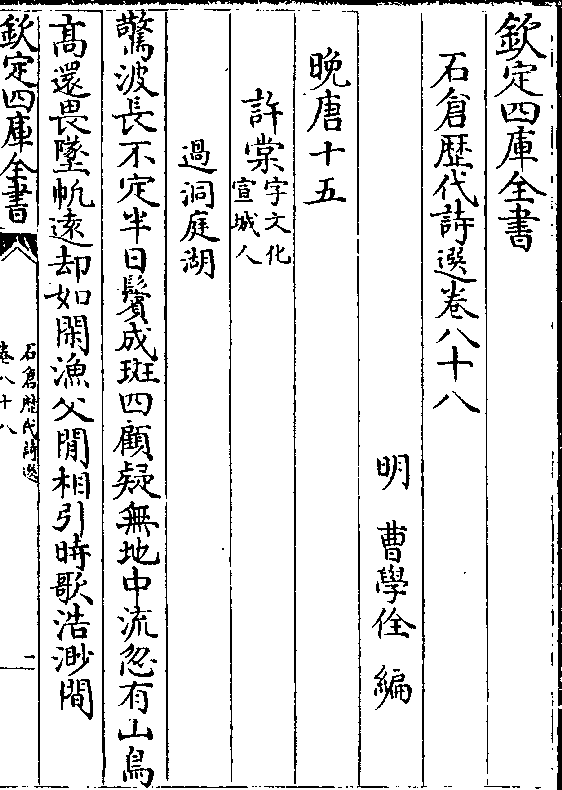 欽定四庫全書
石倉歷代詩選卷八十八
明 曹學佺 編
晚唐十五
許棠字文化
宣城人
過洞庭湖
驚波長不定半日鬢成斑四顧疑無地中流忽有山鳥
高還畏墜帆遠却如閑漁父閒相引時歌浩渺間
欽定四庫全書
石倉歷代詩選
卷八十八
一